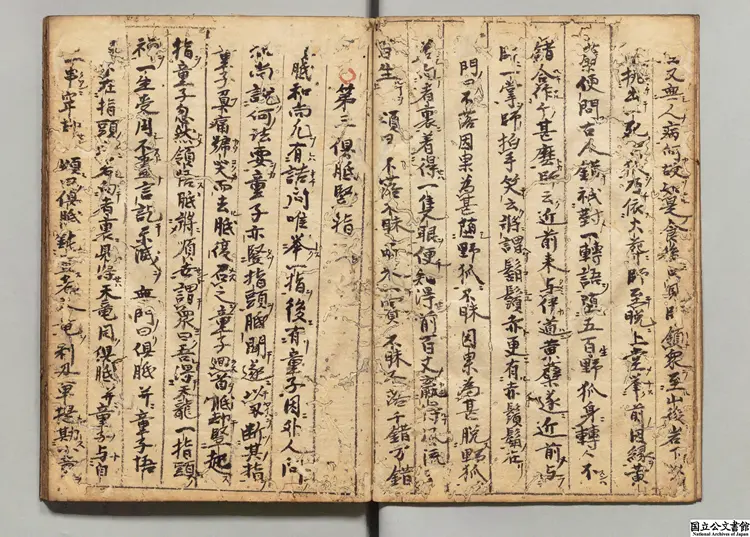 又無人病何故如是食後只見師領衆至山後岩下以
挑出一死野狐乃依火葬師至晩上堂挙前因縁黄
蘗便問古人錯祇對一轉語堕五百野狐身轉々不
錯合作个甚麼師云近前来与伊道黄蘗遂近前与
師一掌師拍手笑云將謂鬍鬚赤更有赤鬚鬍 無
門曰不落因果為甚堕野狐不昧因果為甚脱野狐
若向者裏着得一隻眼便知得前百丈贏得風流
百生 頌曰 不落不昧両采一賽不昧不落千錯万錯
第三倶胝竪指
胝和尚凡有詰問唯挙一指後有童子因外人問
和尚説何法要童子亦竪指頭胝聞遂以刃断其指
童子負痛號哭而去胝復召之童子廻首胝却竪起
指童子忽然領悟胝將順世謂衆曰吾得天龍一指頭
禅一生受用不盡言訖示滅 無門曰倶胝并童子悟
處不在指頭上若向者裏見得天竜同倶胝并童子与自
一串穿却 頌曰倶胝鈍置老天竜利刃単提勘小童
国立公文書館
National Archives of Japan